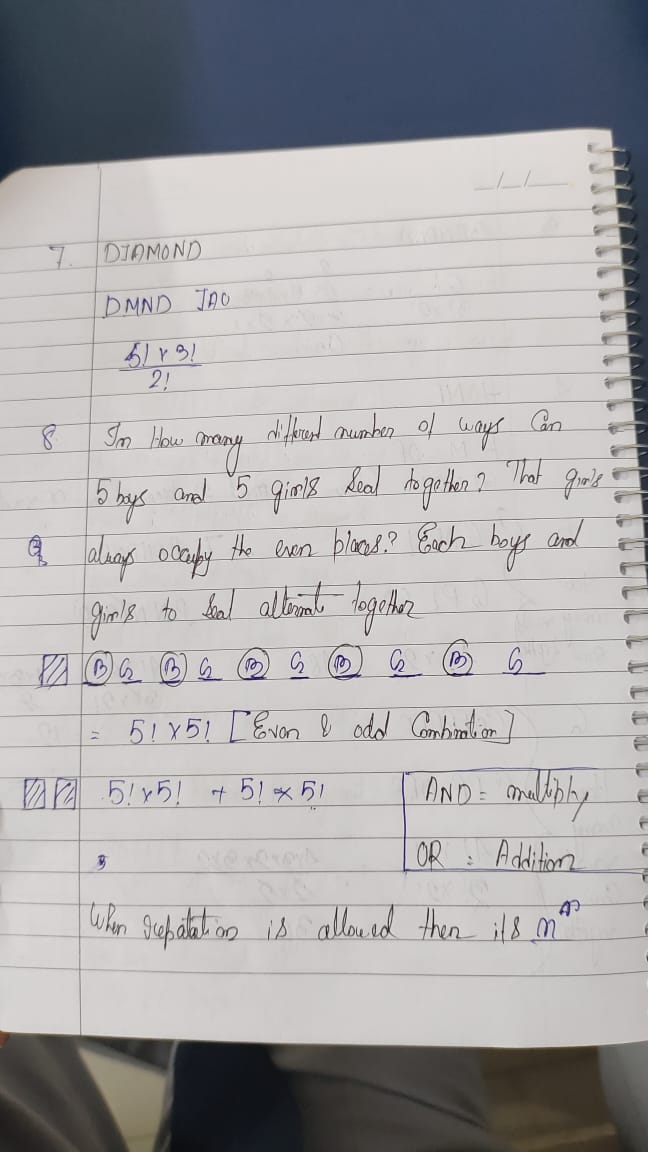 _/_/_
7. DIAMOND
DMND IAO
5! x 3!
2!
8 In How many different number of ways Can
5 boys and 5 girls Seat together? That girls
always occupy the even places? Each boys and
girls to Seat alternat together
B G B G B G B G B G
= 5! x 5! [Even & odd Combination]
5! x 5! + 5! x 5!
AND = multiply
OR = Addition
When repatation is allowed then it's n